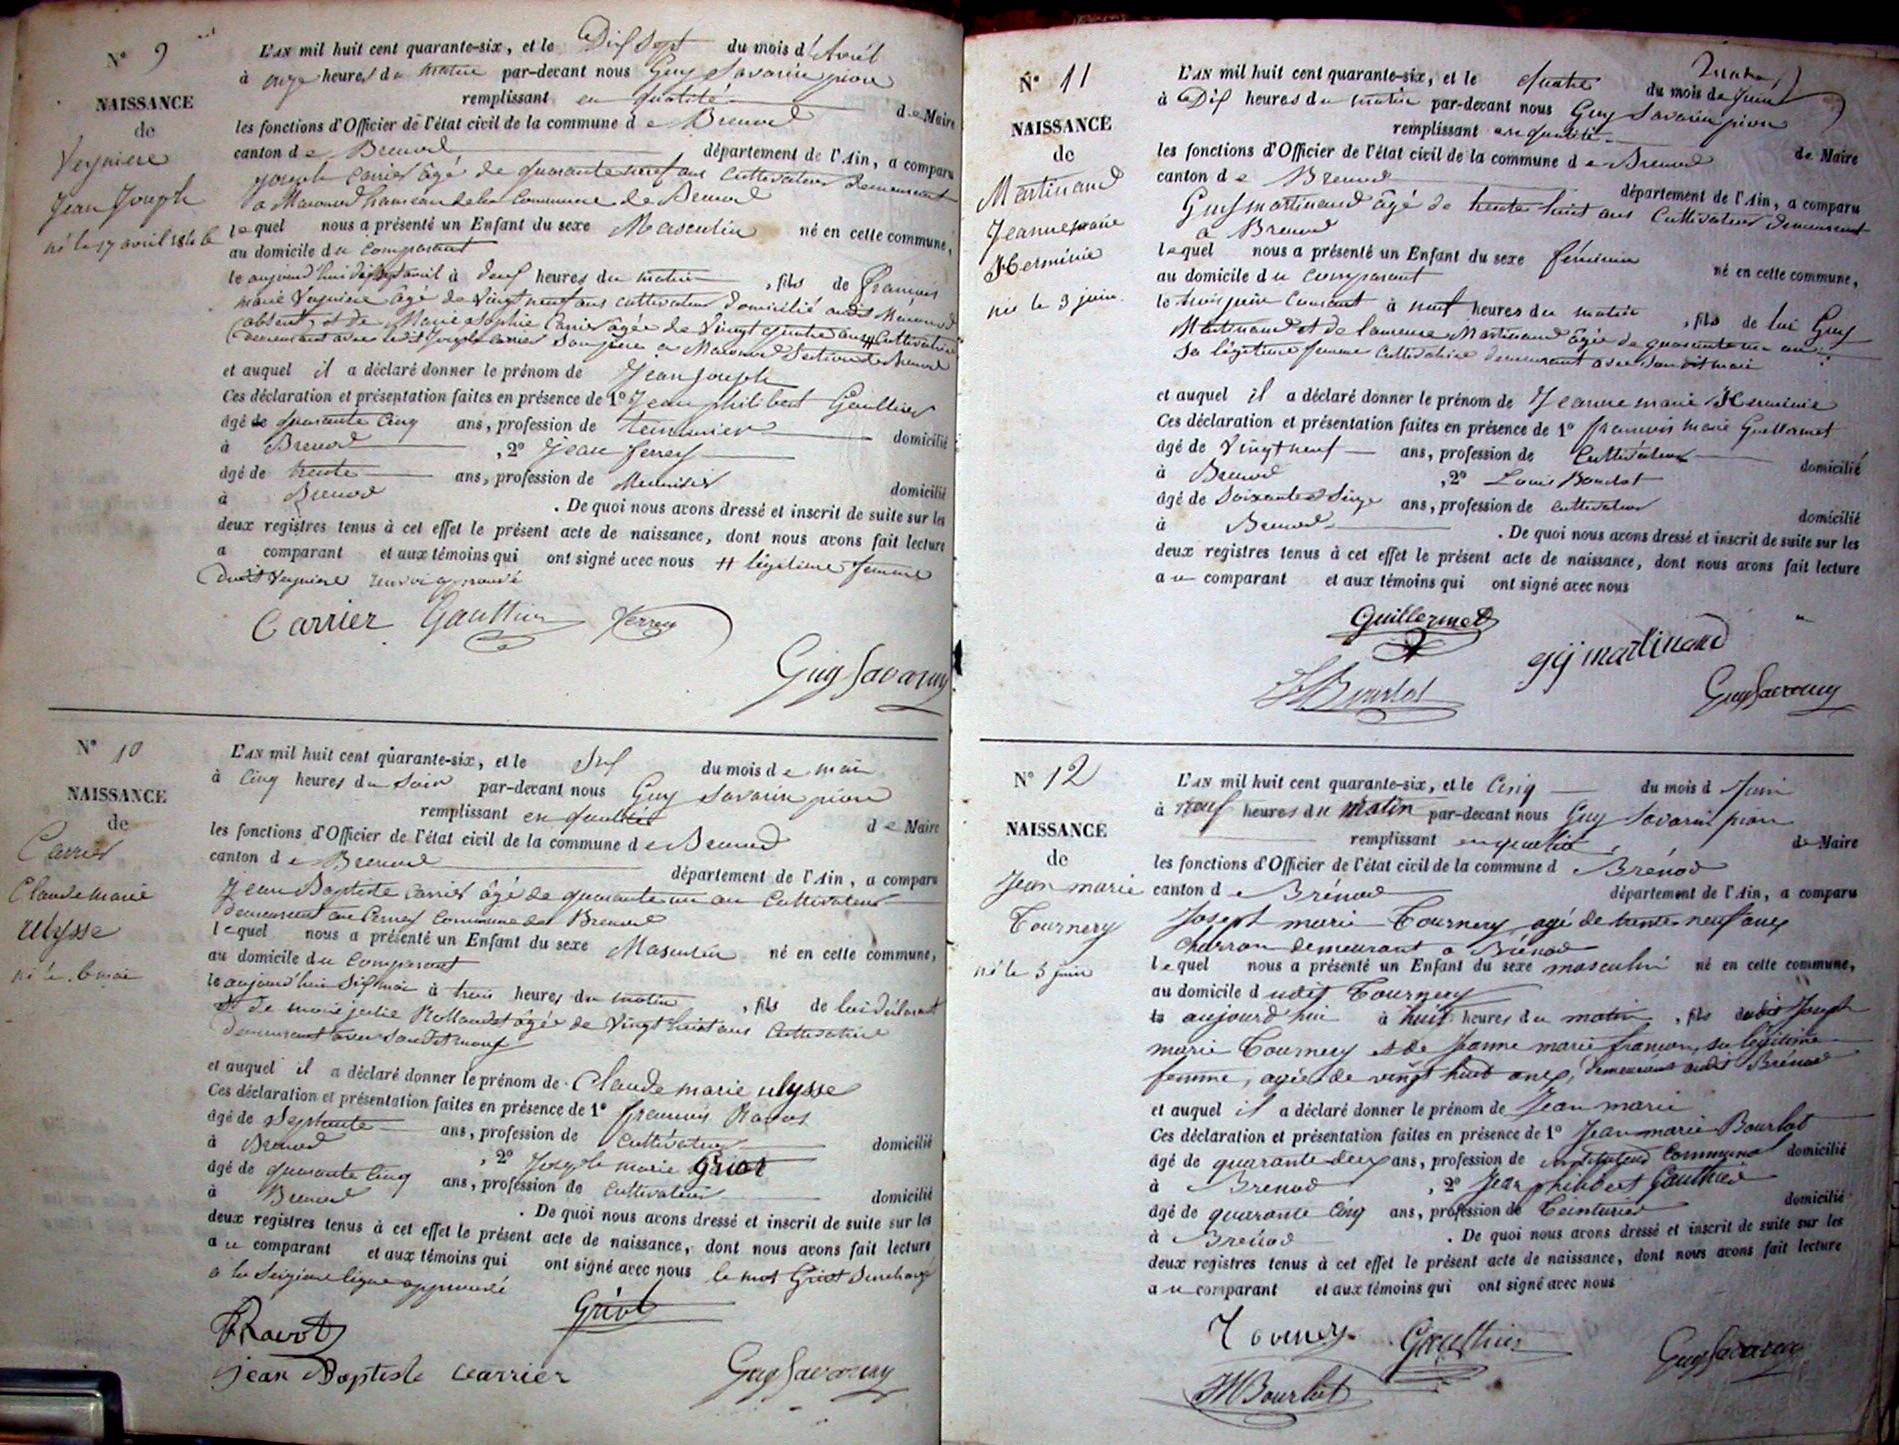 N° 9
NAISSANCE
de
Veyniere
Jean Joseph
né le 17 avril 1846
L'AN mil huit cent quarante-six, et le Dix Sept du mois d'Avril
à onze heures du matin par-devant nous Guy Savarin pion
remplissant en qualité de Maire
les fonctions d'Officier de l'état civil de la commune de Brenod
canton de Brenod département de l'Ain, a comparu
joseph Carrier âgé de quarante neuf ans Cultivateur demeurant
a Macconod hameau de la Commune de Brenod
lequel nous a présenté un Enfant du sexe Masculin né en cette commune,
au domicile du comparant
le aujourd'hui dix sept avril à deux heures du matin, fils de François
marie Veyniere âgé de Vingt neuf ans cultivateur domicilié audit Macconod
absent, et de Marie Sophie Carrier âgée de Vingt quatre ans # Cultivatrice
demeurant avec ledit Joseph Carrier son père a Macconod Section de Brenod
et auquel il a déclaré donner le prénom de Jean Joseph
Ces déclaration et présentation faites en présence de 1° Jean philibert Gauthier
âgé de quarante Cinq ans, profession de teinturier domicilié
à Brenod, 2° Jean ferrey
âgé de trente ans, profession de Menuisier domicilié
à Brenod. De quoi nous avons dressé et inscrit de suite sur les
deux registres tenus à cet effet le présent acte de naissance, dont nous avons fait lecture
a comparant et aux témoins qui ont signé avec nous # légitime femme
dudit Veyniere renvoi approuvé
Carrier Gauthier Ferrey
Guy Savarin
N° 10
NAISSANCE
de
Carrier
Claude marie
Ulysse
né le 6 mai
L'AN mil huit cent quarante-six, et le Six du mois de mai
à Cinq heures du Soir par-devant nous Guy Savarin pion
remplissant en qualité de Maire
les fonctions d'Officier de l'état civil de la commune de Brenod
canton de Brenod département de l'Ain, a comparu
Jean Baptiste Carrier âgé de quarante un an Cultivateur
demeurant au Commune de Brenod
lequel nous a présenté un Enfant du sexe Masculin né en cette commune,
au domicile du Comparant
le aujourd'hui Six mai à trois heures du matin, fils de lui déclarant
et de marie julie Rollandet âgée de Vingt huit ans Cultivatrice
demeurant avec Sondit mary
et auquel il a déclaré donner le prénom de Claude marie ulysse
Ces déclaration et présentation faites en présence de 1° francois Ravot
âgé de Septante ans, profession de Cultivateur domicilié
à Brenod, 2° Joseph marie Griot
âgé de quarante Cinq ans, profession de Cultivateur domicilié
à Brenod. De quoi nous avons dressé et inscrit de suite sur les
deux registres tenus à cet effet le présent acte de naissance, dont nous avons fait lecture
au comparant et aux témoins qui ont signé avec nous le mot Griot Surchargé
a la Seizième ligne approuvé
Ravot Griot
jean Baptiste carrier Guy Savarin
N° 11
NAISSANCE
de
Martinand
Jeanne marie
Herminie
née le 3 juin
L'AN mil huit cent quarante-six, et le quatre du mois de Juin
à Dix heures du matin par-devant nous Guy Savarin pion
remplissant en qualité de Maire
les fonctions d'Officier de l'état civil de la commune de Brenod
canton de Brenod département de l'Ain, a comparu
Guy martinand âgé de trente huit ans Cultivateur demeurant
a Brenod
lequel nous a présenté un Enfant du sexe féminin né en cette commune,
au domicile du comparant
le trois juin Courant à neuf heures du matin, fils de lui Guy
Martinand et de laurence Martinand âgée de quarante un an
Sa légitime femme Cultivatrice demeurant avec Sondit mari
et auquel il a déclaré donner le prénom de Jeanne marie Herminie
Ces déclaration et présentation faites en présence de 1° francois marie Guillermet
âgé de Vingt neuf ans, profession de Cultivateur domicilié
à Brenod, 2° Louis Bourlot
âgé de Soixante Seize ans, profession de cultivateur domicilié
à Brenod. De quoi nous avons dressé et inscrit de suite sur les
deux registres tenus à cet effet le présent acte de naissance, dont nous avons fait lecture
au comparant et aux témoins qui ont signé avec nous
Guillermet
gy martinand
Bourlot Guy Savarin
N° 12
NAISSANCE
de
Jean marie
Tournery
né le 5 juin
L'AN mil huit cent quarante-six, et le Cinq du mois d Juin
à Neuf heures du Matin par-devant nous Guy Savarin pion
remplissant en qualité de Maire
les fonctions d'Officier de l'état civil de la commune d Brénod
canton de Brénod département de l'Ain, a comparu
Joseph marie Tournery, agé de trente neuf ans
Charron demeurant a Brénod
lequel nous a présenté un Enfant du sexe masculin né en cette commune,
au domicile dudit Tournery
le aujourd'hui à huit heures du matin, fils dudit Joseph
marie Tournery et de Jeanne marie françon, sa légitime
femme, agée de vingt huit ans, demeurant audit Brénod
et auquel il a déclaré donner le prénom de Jean marie
Ces déclaration et présentation faites en présence de 1° Jean marie Bourlot
âgé de quarante deux ans, profession de instituteur Communal domicilié
à Brenod, 2° Jean philibert Gauthier
âgé de quarante Cinq ans, profession de Teinturier domicilié
à Brenod. De quoi nous avons dressé et inscrit de suite sur les
deux registres tenus à cet effet le présent acte de naissance, dont nous avons fait lecture
au comparant et aux témoins qui ont signé avec nous
Tournery Gauthier Guy Savarin
JM Bourlot